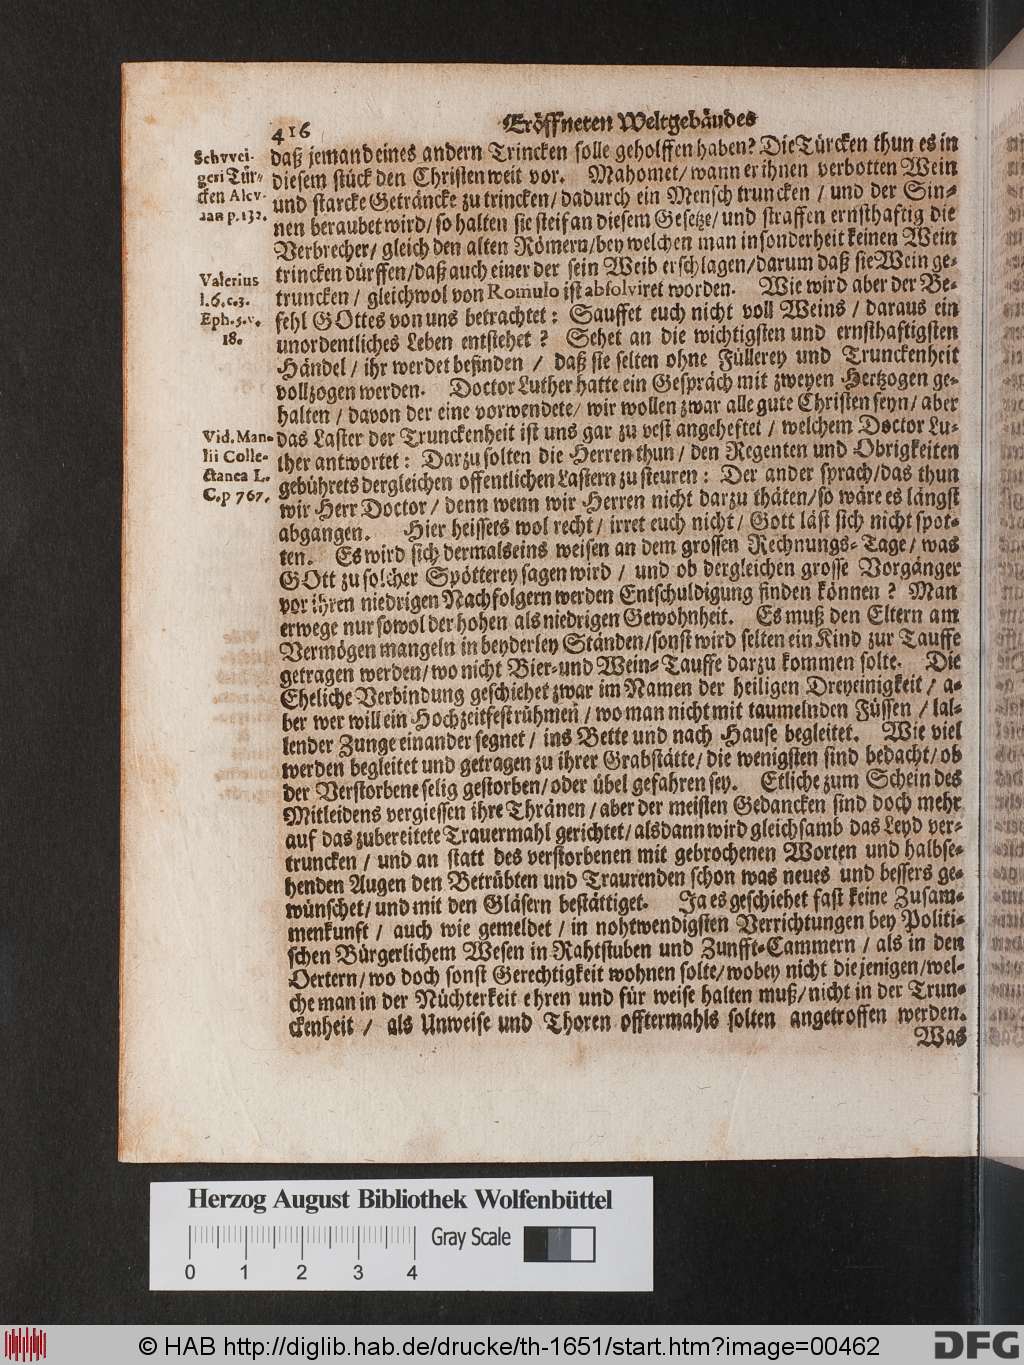 416
Eröffneten Weltgebäudes
Schvvei-
geri Tür-
cken Alcv-
p. 132.
Valerius
l. 6. c. 3.
Eph. 5. v.
18.
Vid. Man-
lii Colle-
ctanea L.
C. p 767.
daß jemand eines andern Trincken solle geholffen haben? Die Türcken thun es in
diesem stück den Christen weit vor. Mahomet/ wann er ihnen verbotten Wein
und starcke Geträncke zu trincken/ dadurch ein Mensch truncken / und der Sin-
nen beraubet wird/ so halten sie steif an diesem Gesetze/ und straffen ernsthaftig die
Verbrecher/ gleich den alten Römern/ bey welchen man insonderheit keinen Wein
trincken dürffen/ daß auch einer der sein Weib erschlagen/ darum daß sie Wein ge-
truncken / gleichwol von Romulo ist absolviret worden. Wie wird aber der Be-
fehl GOttes von uns betrachtet: Sauffet euch nicht voll Weins / daraus ein
unordentliches Leben entstehet ? Sehet an die wichtigsten und ernsthaftigsten
Händel / ihr werdet befinden / daß sie selten ohne Füllerey und Trunckenheit
vollzogen werden. Doctor Luther hatte ein Gespräch mit zweyen Hertzogen ge-
halten / davon der eine vorwendete/ wir wollen zwar alle gute Christen seyn/ aber
das Laster der Trunckenheit ist uns gar zu vest angeheftet / welchem Doctor Lu-
ther antwortet: Darzu solten die Herren thun / den Regenten und Obrigkeiten
gebührets dergleichen offentlichen Lastern zu steuren: Der ander sprach/ das thun
wir Herr Doctor / denn wenn wir Herren nicht darzu thäten/ so wäre es längst
abgangen. Hier heissets wol recht / irret euch nicht / Gott läst sich nicht spot-
ten. Es wird sich dermalseins weisen an dem grossen Rechnungs-Tage/ was
GOtt zu solcher Spötterey sagen wird / und ob dergleichen grosse Vorgänger
vor ihren niedrigen Nachfolgern werden Entschuldigung finden können ? Man
erwege nur sowol der hohen als niedrigen Gewohnheit. Es muß den Eltern am
Vermögen mangeln in beyderley Ständen/ sonst wird selten ein Kind zur Tauffe
getragen werden/ wo nicht Bier- und Wein-Tauffe darzu kommen solte. Die
Eheliche Verbindung geschiehet zwar im Namen der heiligen Dreyeinigkeit / a-
ber wer will ein Hochzeitfest rühmen / wo man nicht mit taumelnden Füssen / lal-
lender Zunge einander segnet / ins Bette und nach Hause begleitet. Wie viel
werden begleitet und getragen zu ihrer Grabstätte/ die wenigsten sind bedacht/ ob
der Verstorbene selig gestorben/ oder übel gefahren sey. Etliche zum Schein des
Mitleidens vergiessen ihre Thränen / aber der meisten Gedancken sind doch mehr
auf das zubereitete Trauermahl gerichtet/ alsdann wird gleichsamb das Leyd ver-
truncken / und an statt des verstorbenen mit gebrochenen Worten und halbse-
henden Augen den Betrübten und Traurenden schon was neues und bessers ge-
wünschet/ und mit den Gläsern bestättiget. Ja es geschiehet fast keine Zusam-
menkunft / auch wie gemeldet / in nohtwendigsten Verrichtungen bey Politi-
schen Bürgerlichem Wesen in Rahtstuben und Zunfft-Cammern / als in den
Oertern/ wo doch sonst Gerechtigkeit wohnen solte/ wobey nicht die jenigen/ wel-
che man in der Nüchterkeit ehren und für weise halten muß/ nicht in der Trun-
ckenheit / als Unweise und Thoren offtermahls solten angetroffen werden.
Was
Herzog August Bibliothek Wolfenbüttel
Gray Scale
0 1 2 3 4
© HAB http://diglib.hab.de/drucke/th-1651/start.htm?image=00462
DFG